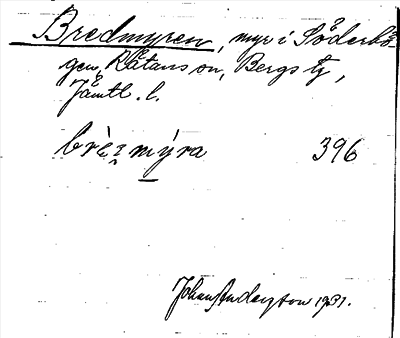 Bredmyren, myr i Söderhö-
gen, Rätans sn, Bergs tg,
Jämtl. l.
brèzmýra 396
Johan Anderzson 1931.